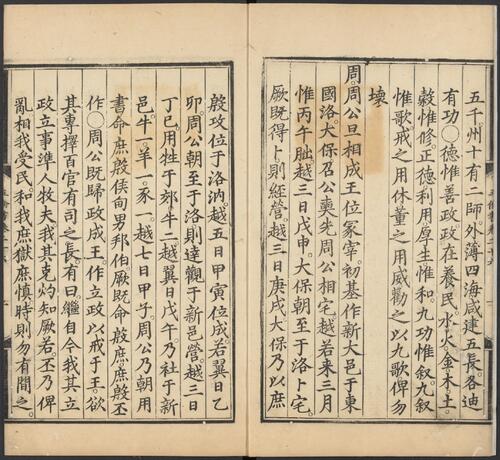 五千州十有二師外薄四海咸建五長各迪
有功○德惟善政政在養民水火金木土
穀惟修正德利用厚生惟和九功惟叙九叙
惟歌戒之用休董之用威勸之以九歌俾勿
壞
周周公旦相成王位冢宰初基作新大邑于東
國洛大保召公奭先周公相宅越若来三月
惟丙午朏越三日戊申大保朝至于洛卜宅
厥既得卜則經營越三日庚戌大保乃以庶
殷攻位于洛汭越五日甲寅位成若翼日乙
卯周公朝至于洛則達觀于新邑營越三日
丁巳用牲于郊牛二越翼日戊午乃社于新
邑牛一羊一豕一越七日甲子周公乃朝用
書命庶殷侯甸男邦伯厥既命殷庶庶殷丕
作○周公既歸政成王作立政以戒于王欲
其專擇百官有司之長有曰繼自今我其立
政立事準人牧夫我其克灼知厥若丕乃俾
亂相我受民和我庶獄庶慎時則勿有間之